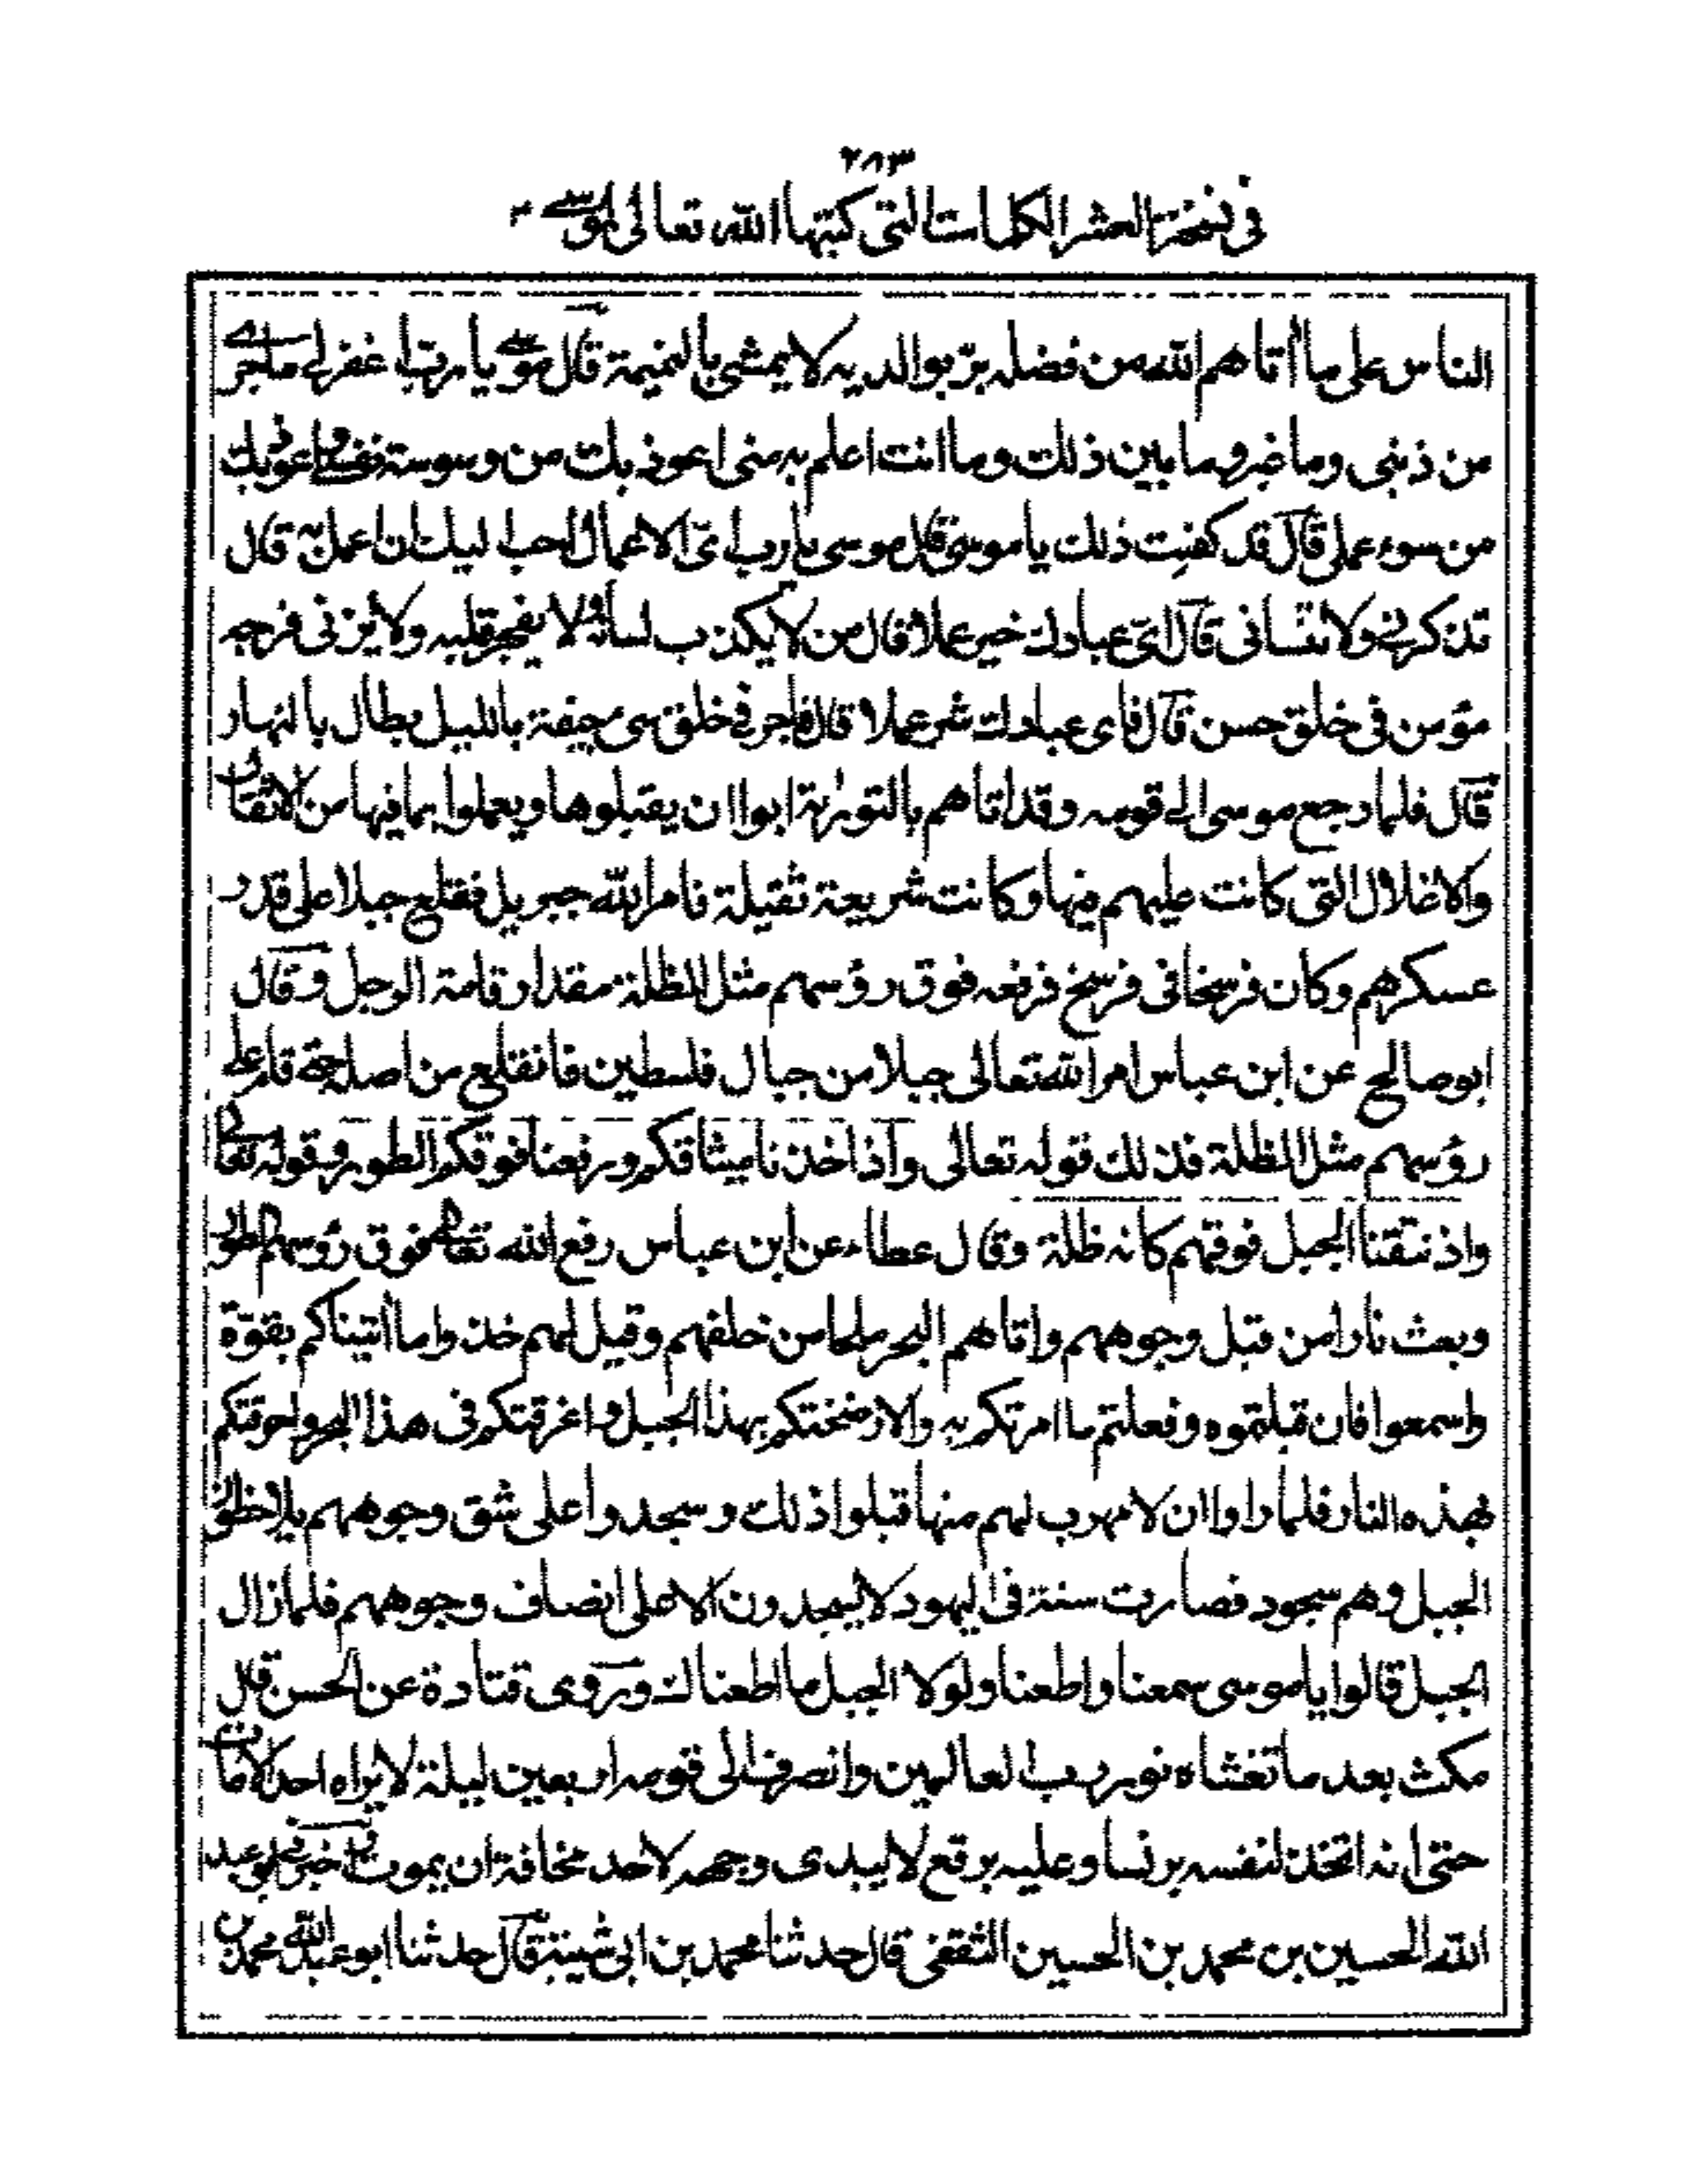 ٢٨٣
في نسخة العشر الكلمات التي كتبها الله تعالى لموسى
الناس على ما أتاهم الله من فضله برّ بوالديه لا يمشي بالنميمة قال موسى يا رب اغفر لي ما جرى
من ذنبي وما غبر وما بين ذلك وما انت اعلم به مني اعوذ بك من وسوسة نفسي واعوذ بك
من سوء عملي قال قد كفيت ذلك يا موسى قال موسى يا رب ايّ الاعمال احب اليك ان اعمل به قال
تذكرني ولا تنساني قال ايّ عبادك خير عملا قال من لا يكذب لسانه ولا يفجر قلبه ولا يزني فرجه
مؤمن في خلق حسن قال فاي عبادك شر عملا قال فاجر في خلق سيء جيفة بالليل بطال بالنهار
قال فلما رجع موسى الى قومه وقد اتاهم بالتورية ابوا ان يقبلوها ويعملوا بما فيها من الاثقال
والاغلال التي كانت عليهم فيها وكانت شريعة ثقيلة فامر الله جبريل فقلع جبلا على قدر
عسكرهم وكان فرسخا في فرسخ فرفعه فوق رؤسهم مثل الظلة مقدار قامة الرجل وقال
ابو صالح عن ابن عباس امر الله تعالى جبلا من جبال فلسطين فانقلع من اصله حتى قام على
رؤسهم مثل الظلة فذلك قوله تعالى واذ اخذنا ميثاقكم ورفعنا فوقكم الطور وقوله تعالى
واذ نتقنا الجبل فوقهم كانه ظلة وقال عطاء عن ابن عباس رفع الله تعالى فوق رؤسهم الطور
وبعث نارا من قبل وجوههم واتاهم البحر ملحا من خلفهم وقيل لهم خذوا ما أتيناكم بقوّة
واسمعوا فان قبلتموه وفعلتم ما امرتكم به والا رضختكم بهذا الجبل واغرقتكم في هذا البحر واحرقتكم
بهذه النار فلما راوا ان لا مهرب لهم منها قبلوا ذلك وسجدوا على شق وجوههم يلاحظون
الجبل وهم سجود فصارت سنة في اليهود لا يسجدون الا على انصاف وجوههم فلما زال
الجبل قالوا يا موسى سمعنا واطعنا ولولا الجبل ما اطعناك وروى قتادة عن الحسن قال
مكث بعد ما تغشاه نور رب العالمين وانصرف الى قومه اربعين ليلة لا يراه احد الا مات
حتى انه اتخذ لنفسه برنسا وعليه برقع لا يبدى وجهه لاحد مخافة ان يموت اخبرني ابو عبد
الله الحسين بن محمد بن الحسين الثقفي قال حدثنا محمد بن ابي شيبة قال حدثنا ابو عبد الله محمد بن